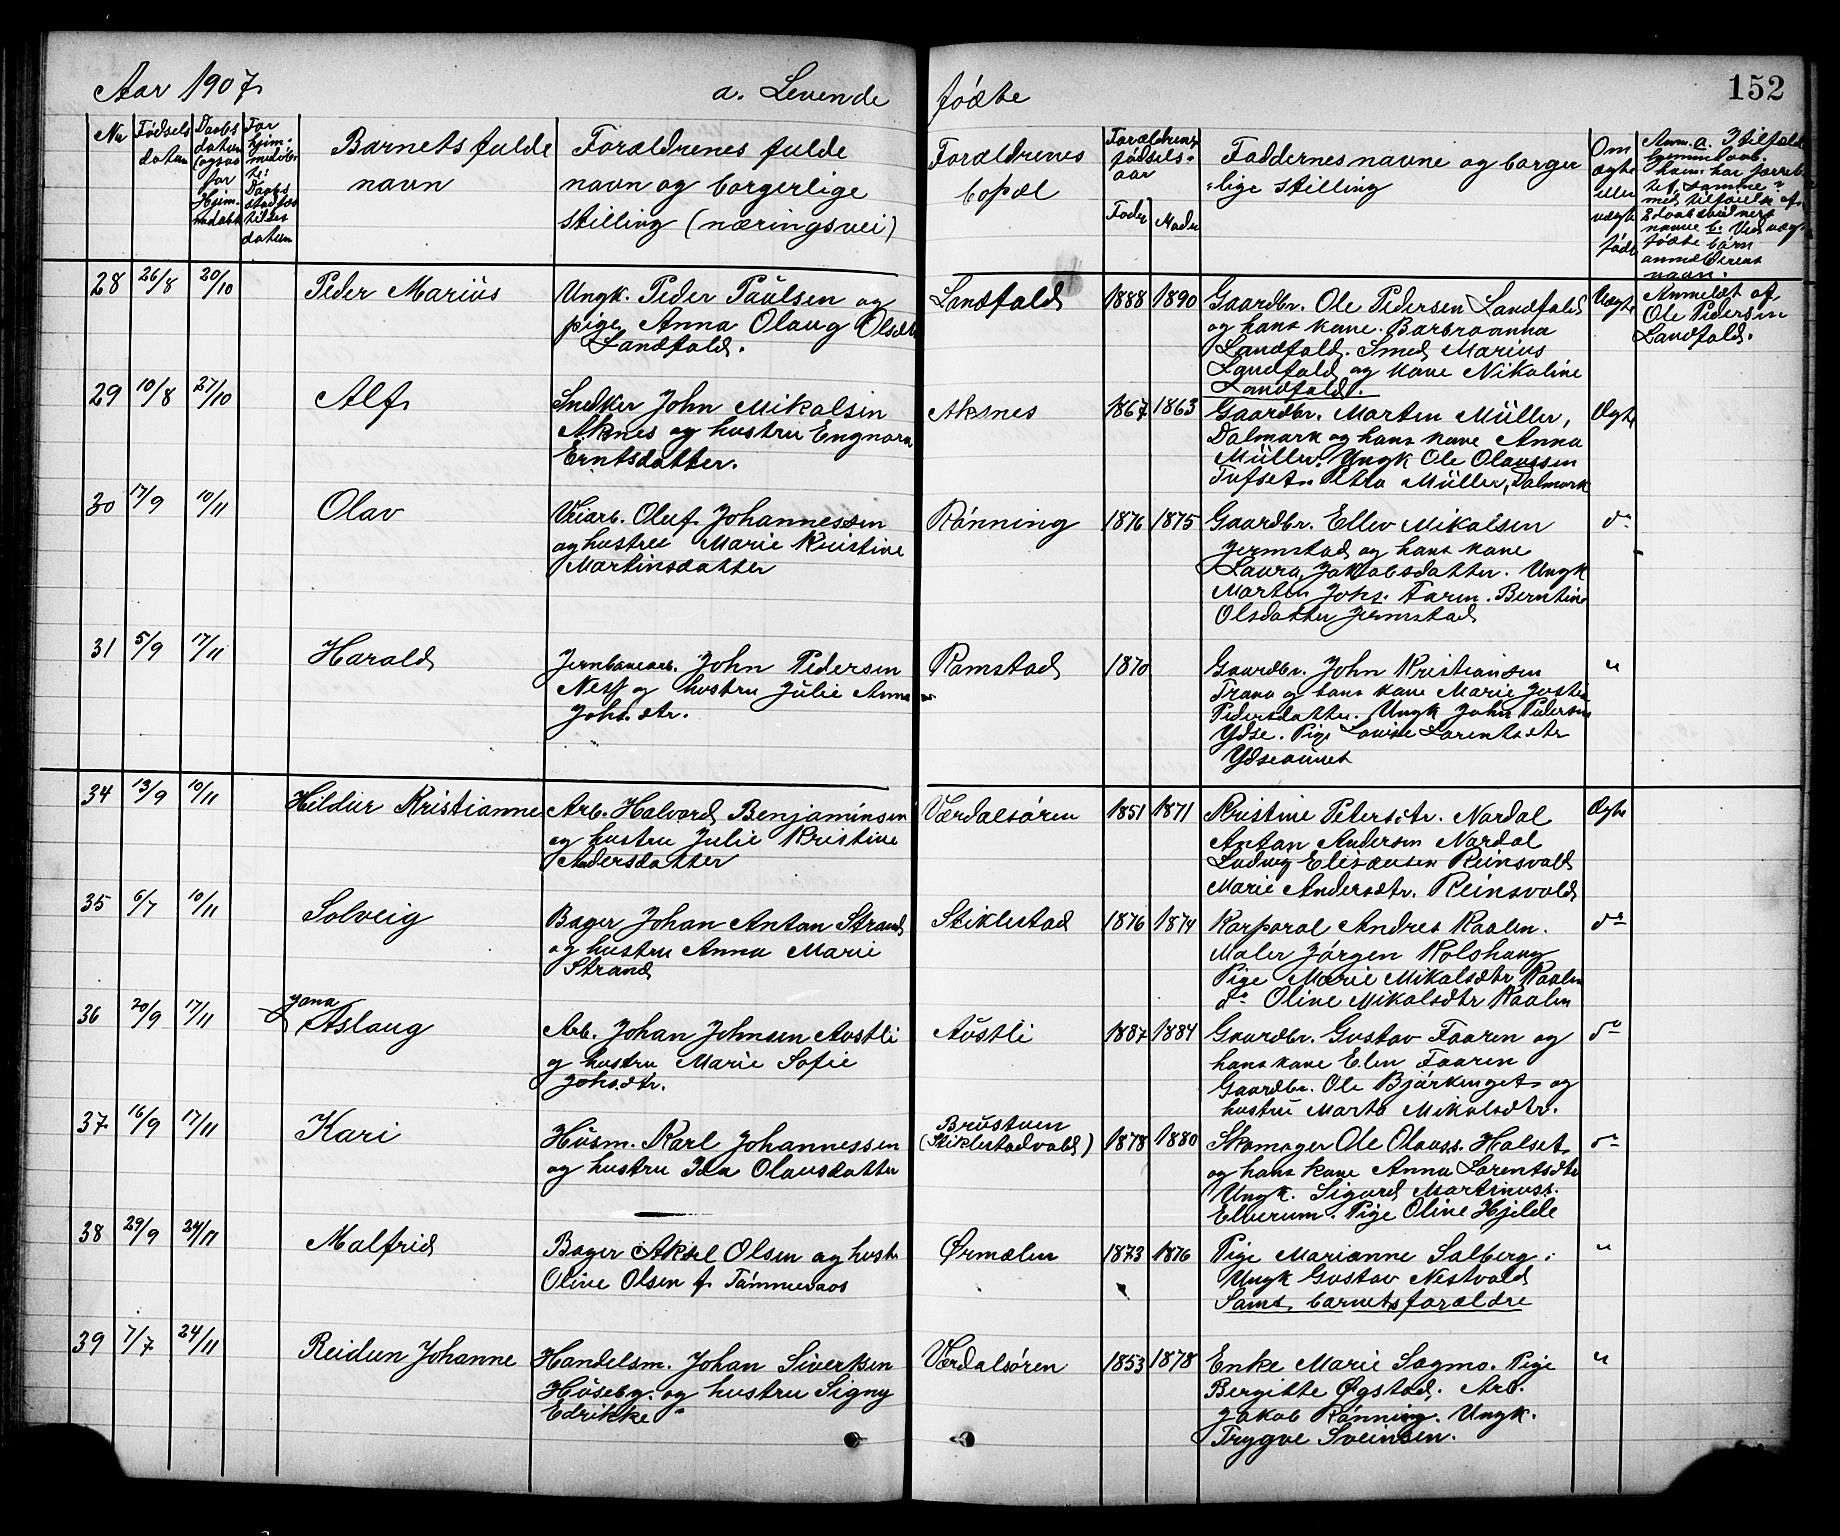 Aar 1907. a. Levende fødte 152
No
Fødsels datum
Daabs datum (ogsaa for Hjemmedøbt
For hjemmedøbte: Daabs stadfæstelses datum
Barnets fulde navn
Forældrenes fulde navn og borgerlige stilling (næringsvei)
Forældrenes bopæl
Forældrenes fødsels-aar
Fader Moder
Faddernes navne og borgerlige stilling
Om ægte eller uægte født
Anm. a. I tilfælde
hjemmedaab.
hvem har forret-
tet samme
med tilføielse af
Daabsvidners
navne b. Ved uægte
fødte børn
anmelderens
navn.
28 26/8 20/10 Peder Marius
Ungk. Peder Paulsen og
pige Anna Olaug Olsdt
Landfald.
Landfald 1888 1890
Gaardbr. Ole Pedersen Landfald
og hans kone Barbroanna
Landfald. Smed Marius
Landfald og kone Nikoline
Landfald.
Uægte
Anmeldt af
Ole Pedersen
Landfald.
29 10/8 27/10 Alf
Snedker John Mikalsen
Aknes og hustru Engnora
Erntsdatter.
Aksnes 1867 1863
Gaardbr. Morten Müller,
Dalmark og hans kone Anna
Müller. Ungk Ole Olaussen
Tufset. Petra Müller, Dalmark
Ægte
30 17/9 10/11 Olav
Veiarb. Oluf Johannessen
og hustru Marie Kristine
Martinsdatter
Rønning 1876 1875
Gaardbr. Ellev Mikalsen
Jermstad og hans kone
Laura Jakobsdatter. Ungk
Morten Johs. Faren. Berntine
Olsdatter Jermstad
do
31 5/9 17/11 Harald
Jernbanearb. John Pedersen
Ness og hustru Julie Anna
Johs.dtr.
Ramstad 1870
Gaardbr. John Kristiansen
Trana og hans kone Marie Justine
Pedersdatter. Ungk John Pedersen
Ydse. Pige Louise Lorentsdtr
Ydseaunet
"
34 13/9 10/11 Hildur Kristianne
Arb. Halvard Benjaminsen
og hustru Julie Kristine
Andersdatter
Værdalsøren 1851 1871
Kristine Petersdtr. Nordal
Anton Andersen Nordal
Ludvig Eliseusen Reinsvald
Marie Andersdtr. Reinsvald
Ægte
35 6/7 10/11 Solveig
Bager Johan Anton Strand
og hustru Anna Marie
Strand
Stiklestad 1876 1874
Korporal Andres Kaalen.
Maler Jørgen Kolshaug
Pige Marie Mikalsdtr Kaalen
do Oline Mikalsdtr Kaalen
do
36 20/9 17/11 Jana Aslaug
Arb. Johan Johnsen Austli
og hustru Marie Sofie
Johs.dtr.
Austli 1887 1884
Gaardbr. Gustav Faaren og
hans kone Elen Faaren
Gaardbr. Ole Bjørkenget og
hustru Marta Mikalsdtr.
do
37 16/9 17/11 Kari
Husm. Karl Johannessen
og hustru Ida Olausdatter
Brustuen
(Stiklestadvald) 1878 1880
Skomager Ole Olauss. Halset
og hans kone Anna Lorentsdtr
Ungk. Sigurd Martinuss.
Elverum. Pige Oline Hjelde
do
38 29/9 24/11 Malfrid
Bager Aksel Olsen og hustr
Oline Olsen f. Tømmeraas
Ørmælen 1873 1876
Pige Marianne Salberg.
Ungk Gustav Nestvold
Samt barnets forældre
"
39 7/7 24/11 Reidun Johanne
Handelsm. Johan Siverksen
Huseby. og hustru Signy
Edrikke
Værdalsøren 1853 1878
Enke Marie Sagmo. Pige
Bergitte Øgstad. Arb.
Jakob Rønning. Ungk.
Trygve Sveinsen.
"